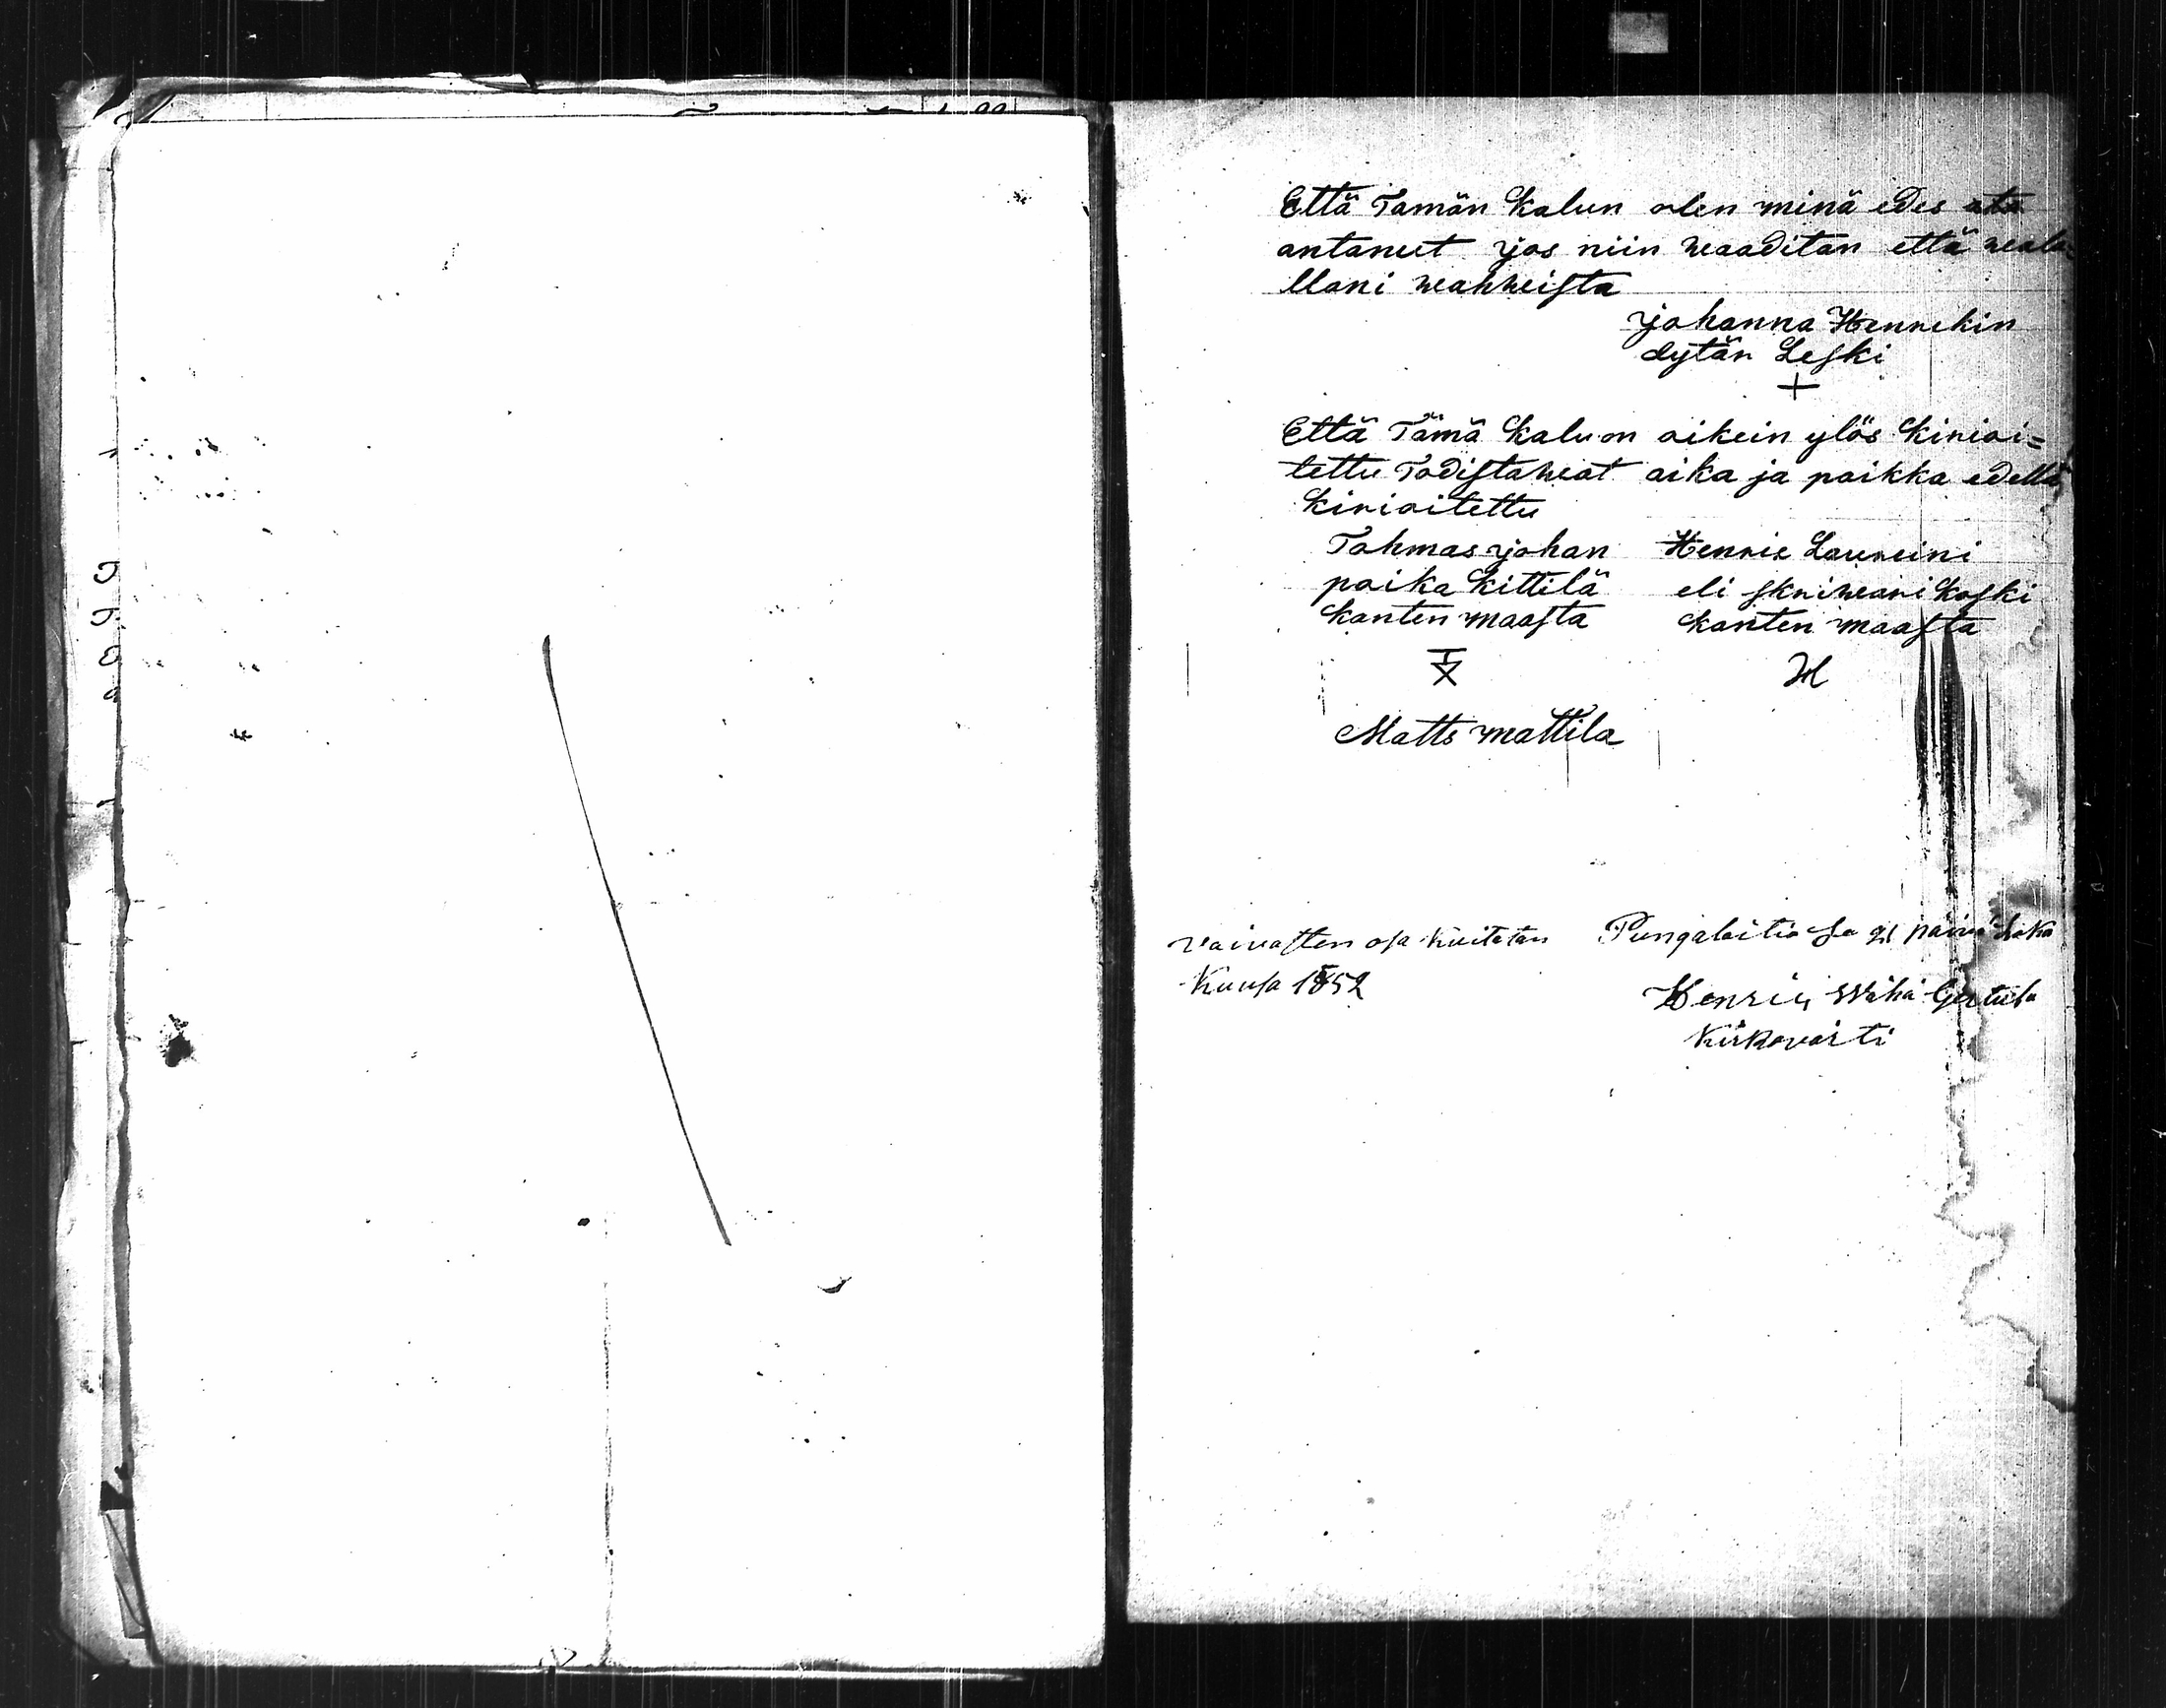 Että Tamän Kalun olen minä edes
antanut jos niin waaditan että wala
llani wahweista
Johanna Henrikin
dytär Leski
+
Että Tämä Kalu on oikein ylös Kirioi=
tettu Todistawat aika ja paikka edellä
Kirioitettu
Tahmas johan
poika Kittilä
Kanten maasta
Henric Laureini
eli skriweari Koski
Kanten maasta
H
Matts Mattila
Vaivasten osa Kuitatan Pungalaitio
Kuusa 1852
Henric Wähä
Kirkovarti